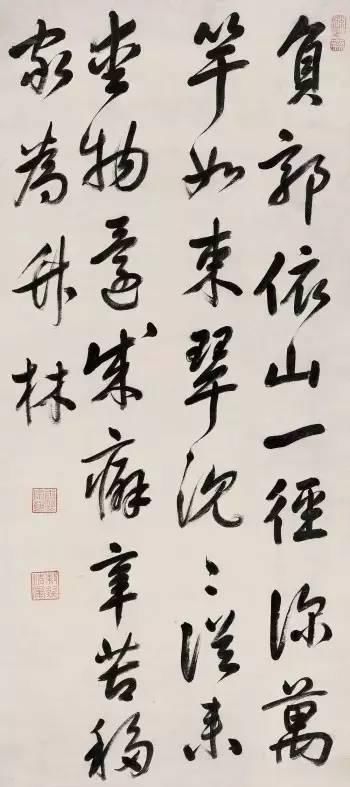 負郭依山一徑深萬
竿如束翠沉〻從來
愛物還成癖辛苦移
家為竹林